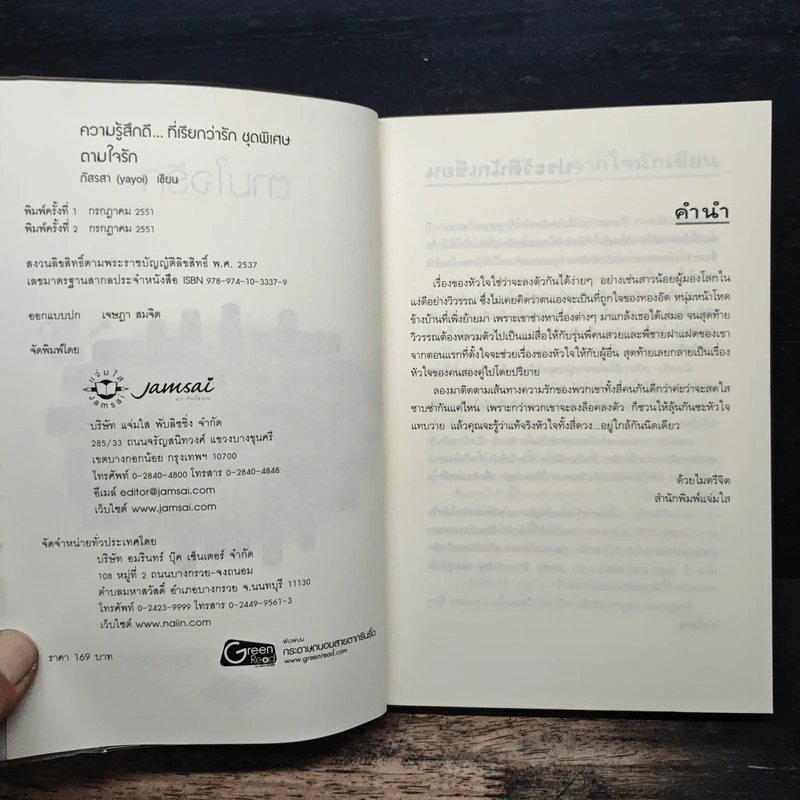 ความรู้สึกดี... ที่เรียกว่ารัก ชุดพิเศษ
ตามใจรัก
ภัสรสา (yayoi) เขียน
พิมพ์ครั้งที่ 1 กรกฎาคม 2551
พิมพ์ครั้งที่ 2 กรกฎาคม 2551
สงวนลิขสิทธิ์ตามพระราชบัญญัติลิขสิทธิ์ พ.ศ. 2537
เลขมาตรฐานสากลประจำหนังสือ ISBN 978-974-10-3337-9
ออกแบบปก เจษฎา สมจิต
จัดพิมพ์โดย
แจ่มใส
Jamsai
Jamsai
บริษัท แจ่มใส พับลิชชิ่ง จำกัด
285/33 ถนนจรัญสนิทวงศ์ แขวงบางขุนศรี
เขตบางกอกน้อย กรุงเทพฯ 10700
โทรศัพท์ 0-2840-4800 โทรสาร 0-2840-4848
อีเมล์ editor@jamsai.com
เว็บไซต์ www.jamsai.com
จัดจำหน่ายทั่วประเทศโดย
บริษัท อมรินทร์ บุ๊ค เซ็นเตอร์ จำกัด
108 หมู่ที่ 2 ถนนบางกรวย-จงถนอม
ตำบลมหาสวัสดิ์ อำเภอบางกรวย จ.นนทบุรี 11130
โทรศัพท์ 0-2423-9999 โทรสาร 0-2449-9561-3
เว็บไซต์ www.naiin.com
ราคา 169 บาท
Green Read
พิมพ์บน
กระดาษถนอมสายตากรีนรี้ด
www.greenread.com
คำนำ
เรื่องของหัวใจใช่ว่าจะลงตัวกันได้ง่ายๆ อย่างเช่นสาวน้อยผู้มองโลกใน
แง่ดีอย่างวิวรรณ ซึ่งไม่เคยคิดว่าตนเองจะเป็นที่ถูกใจของทองอัด หนุ่มหน้าโหด
ข้างบ้านที่เพิ่งย้ายมา เพราะเขาช่างหาเรื่องต่างๆ มาแกล้งเธอได้เสมอ จนสุดท้าย
วิวรรณต้องหลวมตัวไปเป็นแม่สื่อให้กับรุ่นพี่คนสวยและพี่ชายฝาแฝดของเขา
จากตอนแรกที่ตั้งใจจะช่วยเรื่องของหัวใจให้กับผู้อื่น สุดท้ายเลยกลายเป็นเรื่อง
หัวใจของคนสองคู่ไปโดยปริยาย
ลองมาติดตามเส้นทางความรักของพวกเขาทั้งสี่คนกันดีกว่าค่ะว่าจะสดใส
ซาบซ่ากันแค่ไหน เพราะกว่าพวกเขาจะลงล็อคลงตัว ก็ชวนให้ลุ้นกันซะหัวใจ
แทบวาย แล้วคุณจะรู้ว่าแท้จริงหัวใจทั้งสี่ดวง...อยู่ใกล้กันนิดเดียว
ด้วยไมตรีจิต
สำนักพิมพ์แจ่มใส